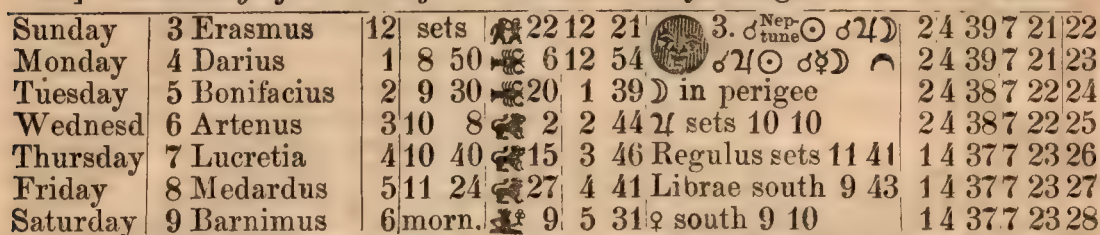 Sunday 3 Erasmus 12 sets 22 12 21 3. ☌ Neptune ☉ ☌ ♃ ☽ 2 4 39 7 21 22
Monday 4 Darius 1 8 50 6 12 54 ☌ ♃ ☉ ☌ ☿ ☽ 2 4 39 7 21 23
Tuesday 5 Bonifacius 2 9 30 20 1 39 ☽ in perigee 2 4 38 7 22 24
Wednesd 6 Artenus 3 10 8 2 2 44 ♃ sets 10 10 2 4 38 7 22 25
Thursday 7 Lucretia 4 10 40 15 3 46 Regulus sets 11 41 1 4 37 7 23 26
Friday 8 Medardus 5 11 24 27 4 41 Librae south 9 43 1 4 37 7 23 27
Saturday 9 Barnimus 6 morn. 9 5 31 ♀ south 9 10 1 4 37 7 23 28